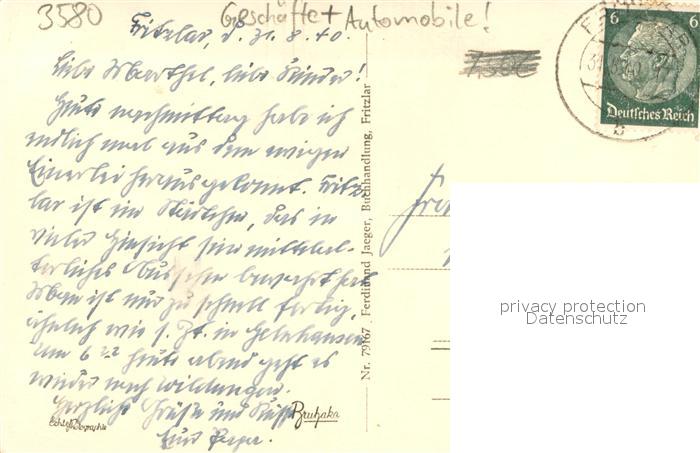 3580
Geschäfte + Automobile!
Fritzlar, d. 31.8.40.
Liebe Marthel, liebe Kinder!
Heute nachmittag habe ich
endlich mal aus dem ewigen
Einerlei herausgekonnt. Fritz-
lar ist ein Städtchen, das in
vieler Hinsicht sein mittelal-
terliches Aussehen bewahrt hat.
Man ist nur zu schnell fertig,
ähnlich wie s. Zt. in Gelnhausen.
Um 6 22 heute abend geht es
wieder nach Wildungen.
Herzliche Grüße und Küsse
Euer
Echte Photographie
Bruhaka
Nr. 79167 Ferdinand Jaeger, Buchhandlung, Fritzlar
6 6
Deutsches Reich
b
privacy protection
Datenschutz